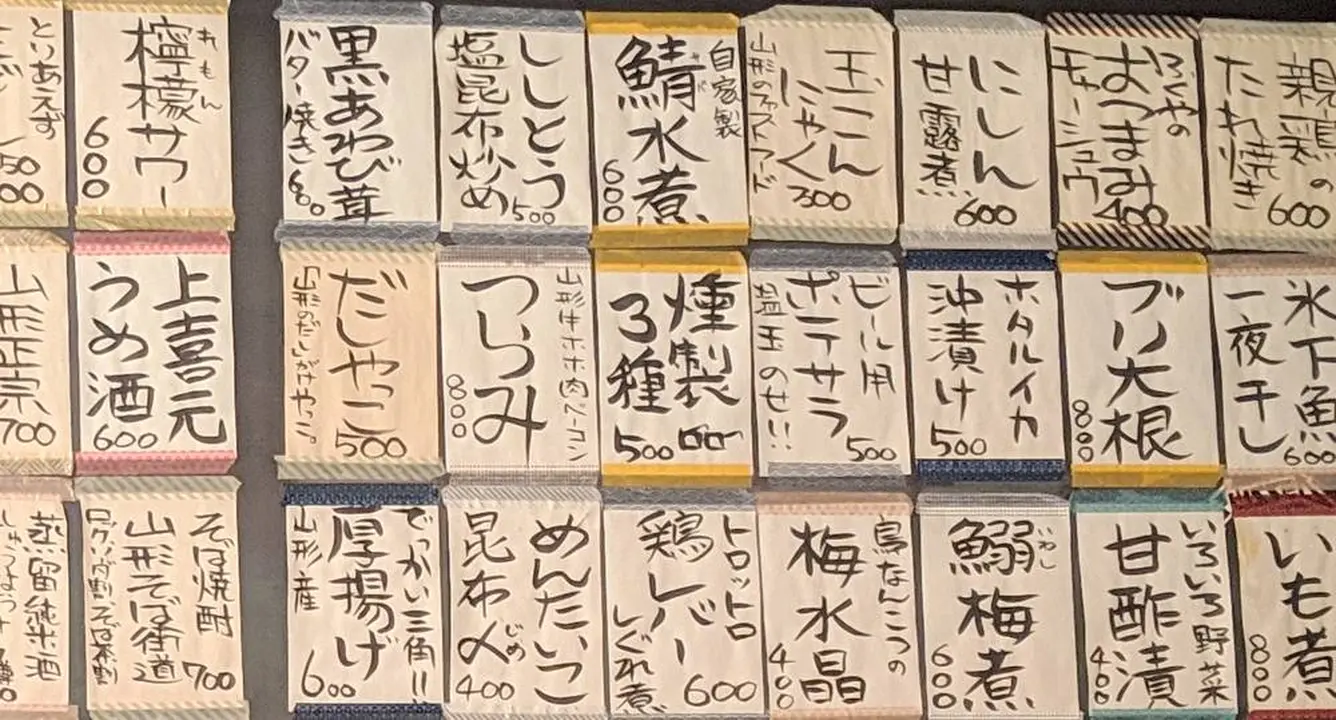 親鶏の
たれ焼き
600
ふくやの
おつまみ
チャーシュウ
400
にしん
甘露煮
600
玉こん
にゃく
山形のファストフード
300
自家製
鯖水煮
サバ
600
ししとう
塩昆布炒め
500
黒あわび茸
バター焼き
600
檸檬サワー
れもん
600
とりあえず
氷下魚
一夜干し
600
ブリ大根
800
ホタルイカ
沖漬け
500
ビール用
ポテサラ
塩玉のせ!!
500
燻製
3種
500
山形牛ホホ肉ベーコン
つらみ
800
だしやっこ
「山形のだし」がけやっこ。
500
上喜元
うめ酒
600
山形正宗
700
いも煮
800
いろいろ野菜
甘酢漬
400
鰯梅煮
いわし
600
鳥なんこつの
梅水晶
400
トロットロ
鶏レバー
しぐれ煮
600
めんたいこ
昆布〆
じめ
400
でっかい三角!!
厚揚げ
山形産
600
そば焼酎
山形そば街道
700
蒸留純米酒